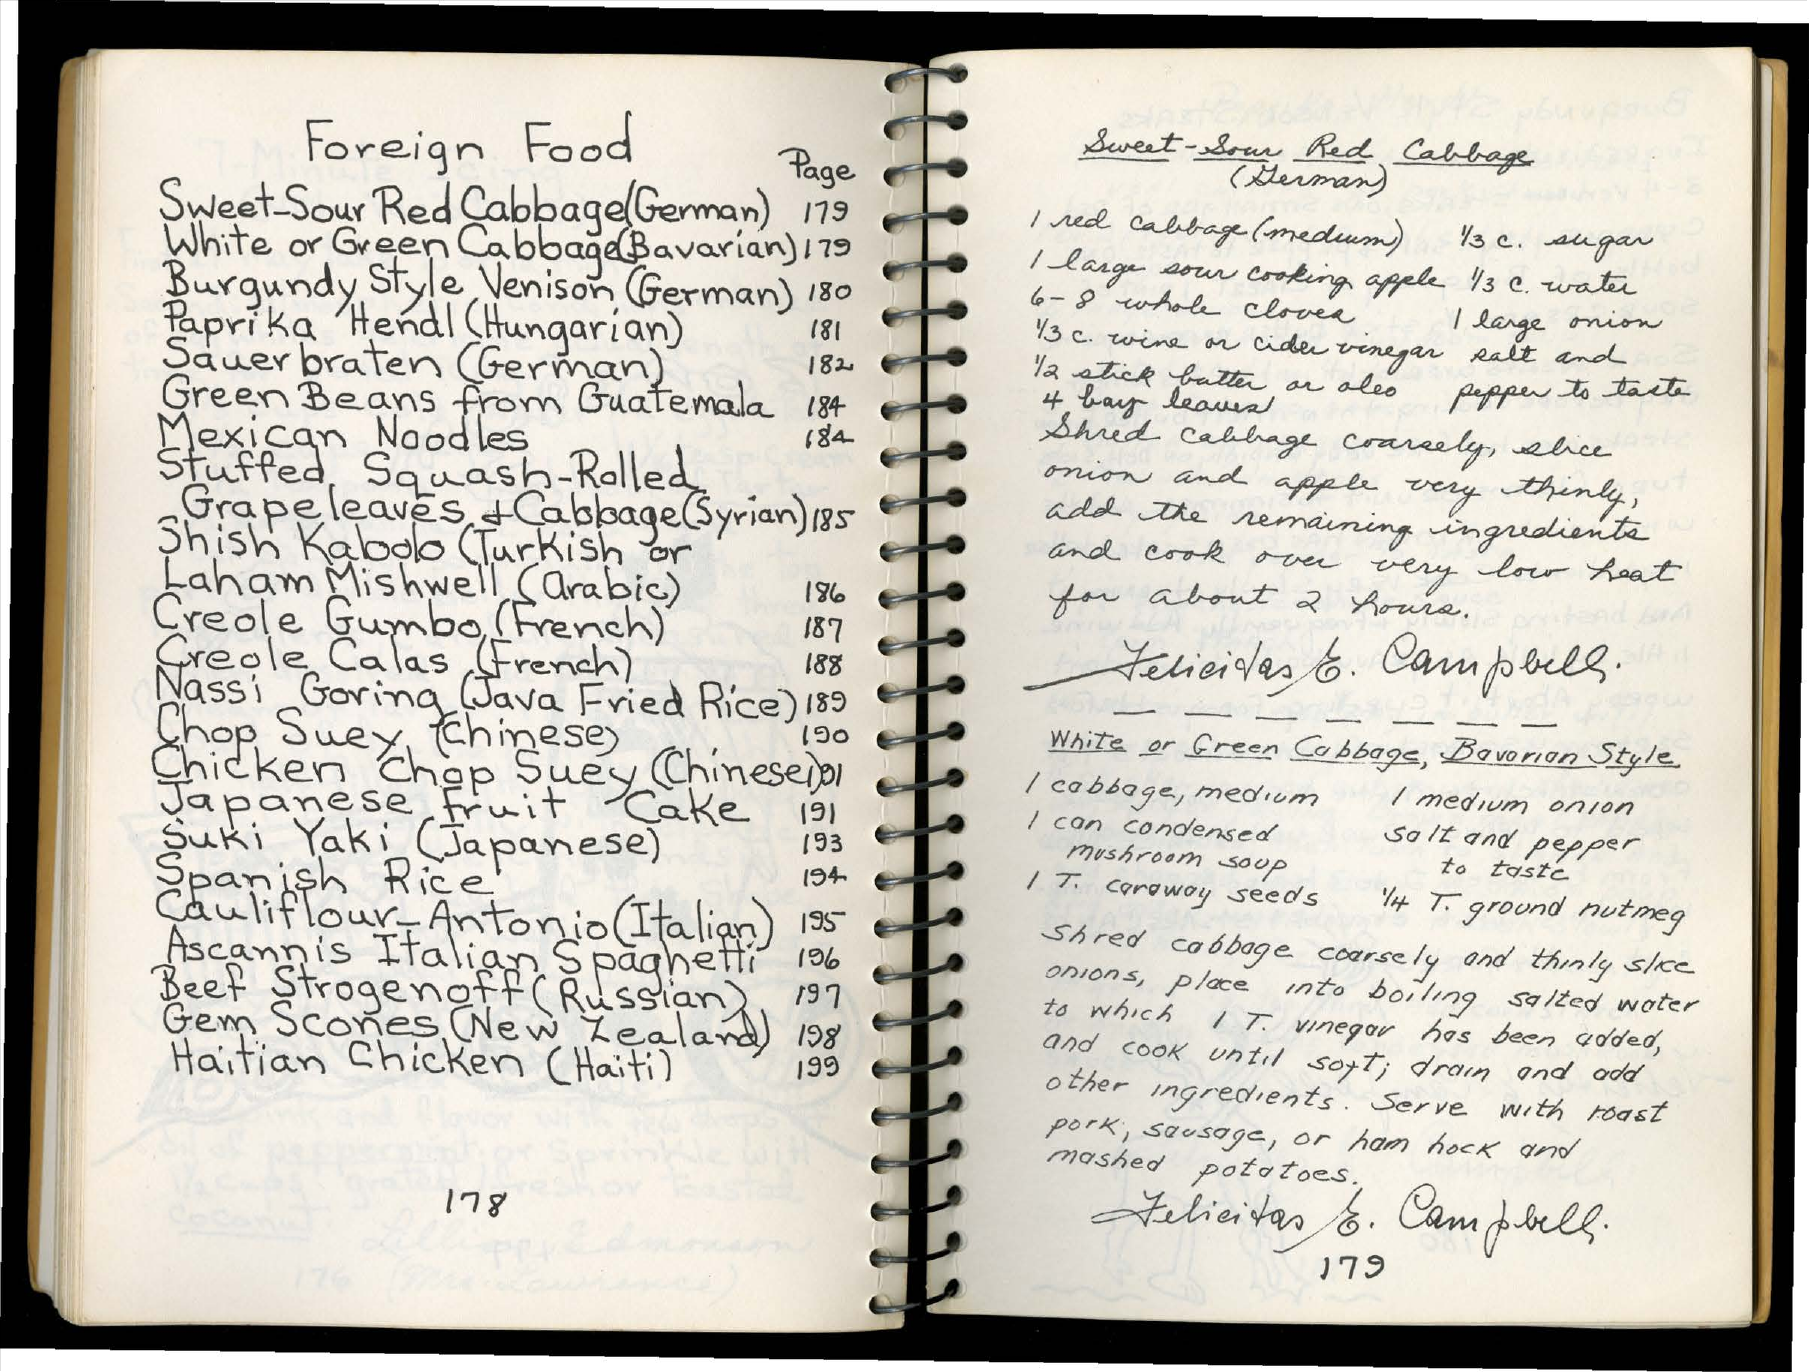 Foreign Food
Page
Sweet-Sour Red Cabbage (German) 179
White or Green Cabbage (Bavarian) 179
Burgundy Style Venison (German) 180
Paprika Hendl (Hungarian) 181
Sauerbraten (German) 182
Green Beans from Guatemala 184
Mexican Noodles 184
Stuffed Squash-Rolled
Grapeleaves & Cabbage (Syrian) 185
Shish Kabob (Turkish or
Laham Mishwell (Arabic) 186
Creole Gumbo (French) 187
Creole Calas (French) 188
Nassi Goring (Java Fried Rice) 189
Chop Suey (Chinese) 190
Chicken Chop Suey (Chinese) 191
Japanese Fruit Cake 191
Suki Yaki (Japanese) 193
Spanish Rice 194
Cauliflour-Antonio (Italian) 195
Ascannis Italian Spaghetti 196
Beef Strogenoff (Russian) 197
Gem Scones (New Zealand) 198
Haitian Chicken (Haiti) 199
178
Sweet-Sour Red Cabbage
(German)
1 red cabbage (medium) 1/3 c. sugar
1 large sour cooking apple 1/3 c. water
6-8 whole cloves 1 large onion
1/3 c. wine or cider vinegar salt and
1/2 stick butter or oleo pepper to taste
4 bay leaves
Shred cabbage coarsely, slice
onion and apple very thinly,
add the remaining ingredients
and cook over very low heat
for about 2 hours.
Felicitas E. Campbell.
White or Green Cabbage, Bavarian Style
1 cabbage, medium 1 medium onion
1 can condensed salt and pepper
mushroom soup to taste
1 T. caraway seeds 1/4 T. ground nutmeg
Shred cabbage coarsely and thinly slice
onions, place into boiling salted water
to which 1 T. vinegar has been added,
and cook until soft; drain and add
other ingredients. Serve with roast
pork, sausage, or ham hock and
mashed potatoes.
Felicitas E. Campbell.
179